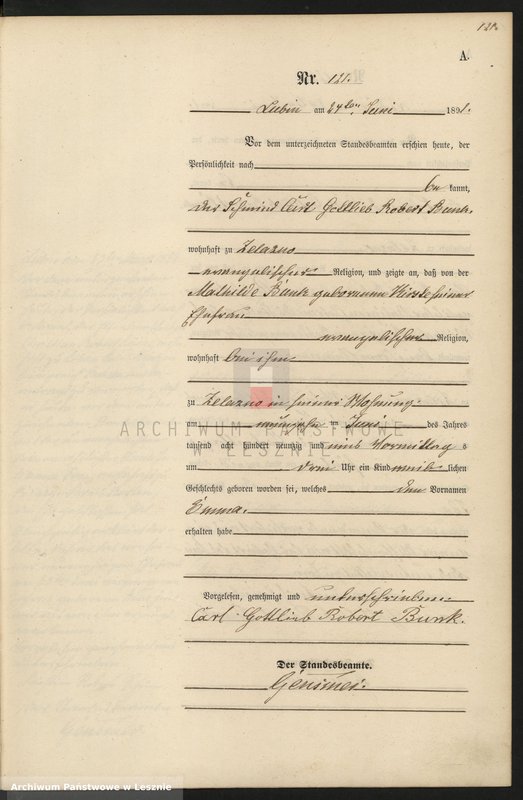 121.
A.
Nr. 121.
Lubin am 24ten Juni 1891.
Vor dem unterzeichneten Standesbeamten erschien heute, der
Persönlichkeit nach
be kannt,
der Schmied Carl Gottlieb Robert Bunk,
wohnhaft zu Zelazno
evangelischer Religion, und zeigte an, daß von der
Mathilde Bunk geborenen seiner
Ehefrau
evangelischer Religion,
wohnhaft bei ihm
zu Zelazno in seiner Wohnung
am neunzehn ten Juni des Jahres
tausend acht hundert neunzig und eins Vormittag s
um drei Uhr ein Kind weib lichen
Geschlechts geboren worden sei, welches den Vornamen
Emma.
erhalten habe
Vorgelesen, genehmigt und unterschrieben.
Carl Gottlieb Robert Bunk.
Der Standesbeamte.
ARCHIWUM PAŃSTWOWE
W LESZNIE
Archiwum Państwowe w Lesznie